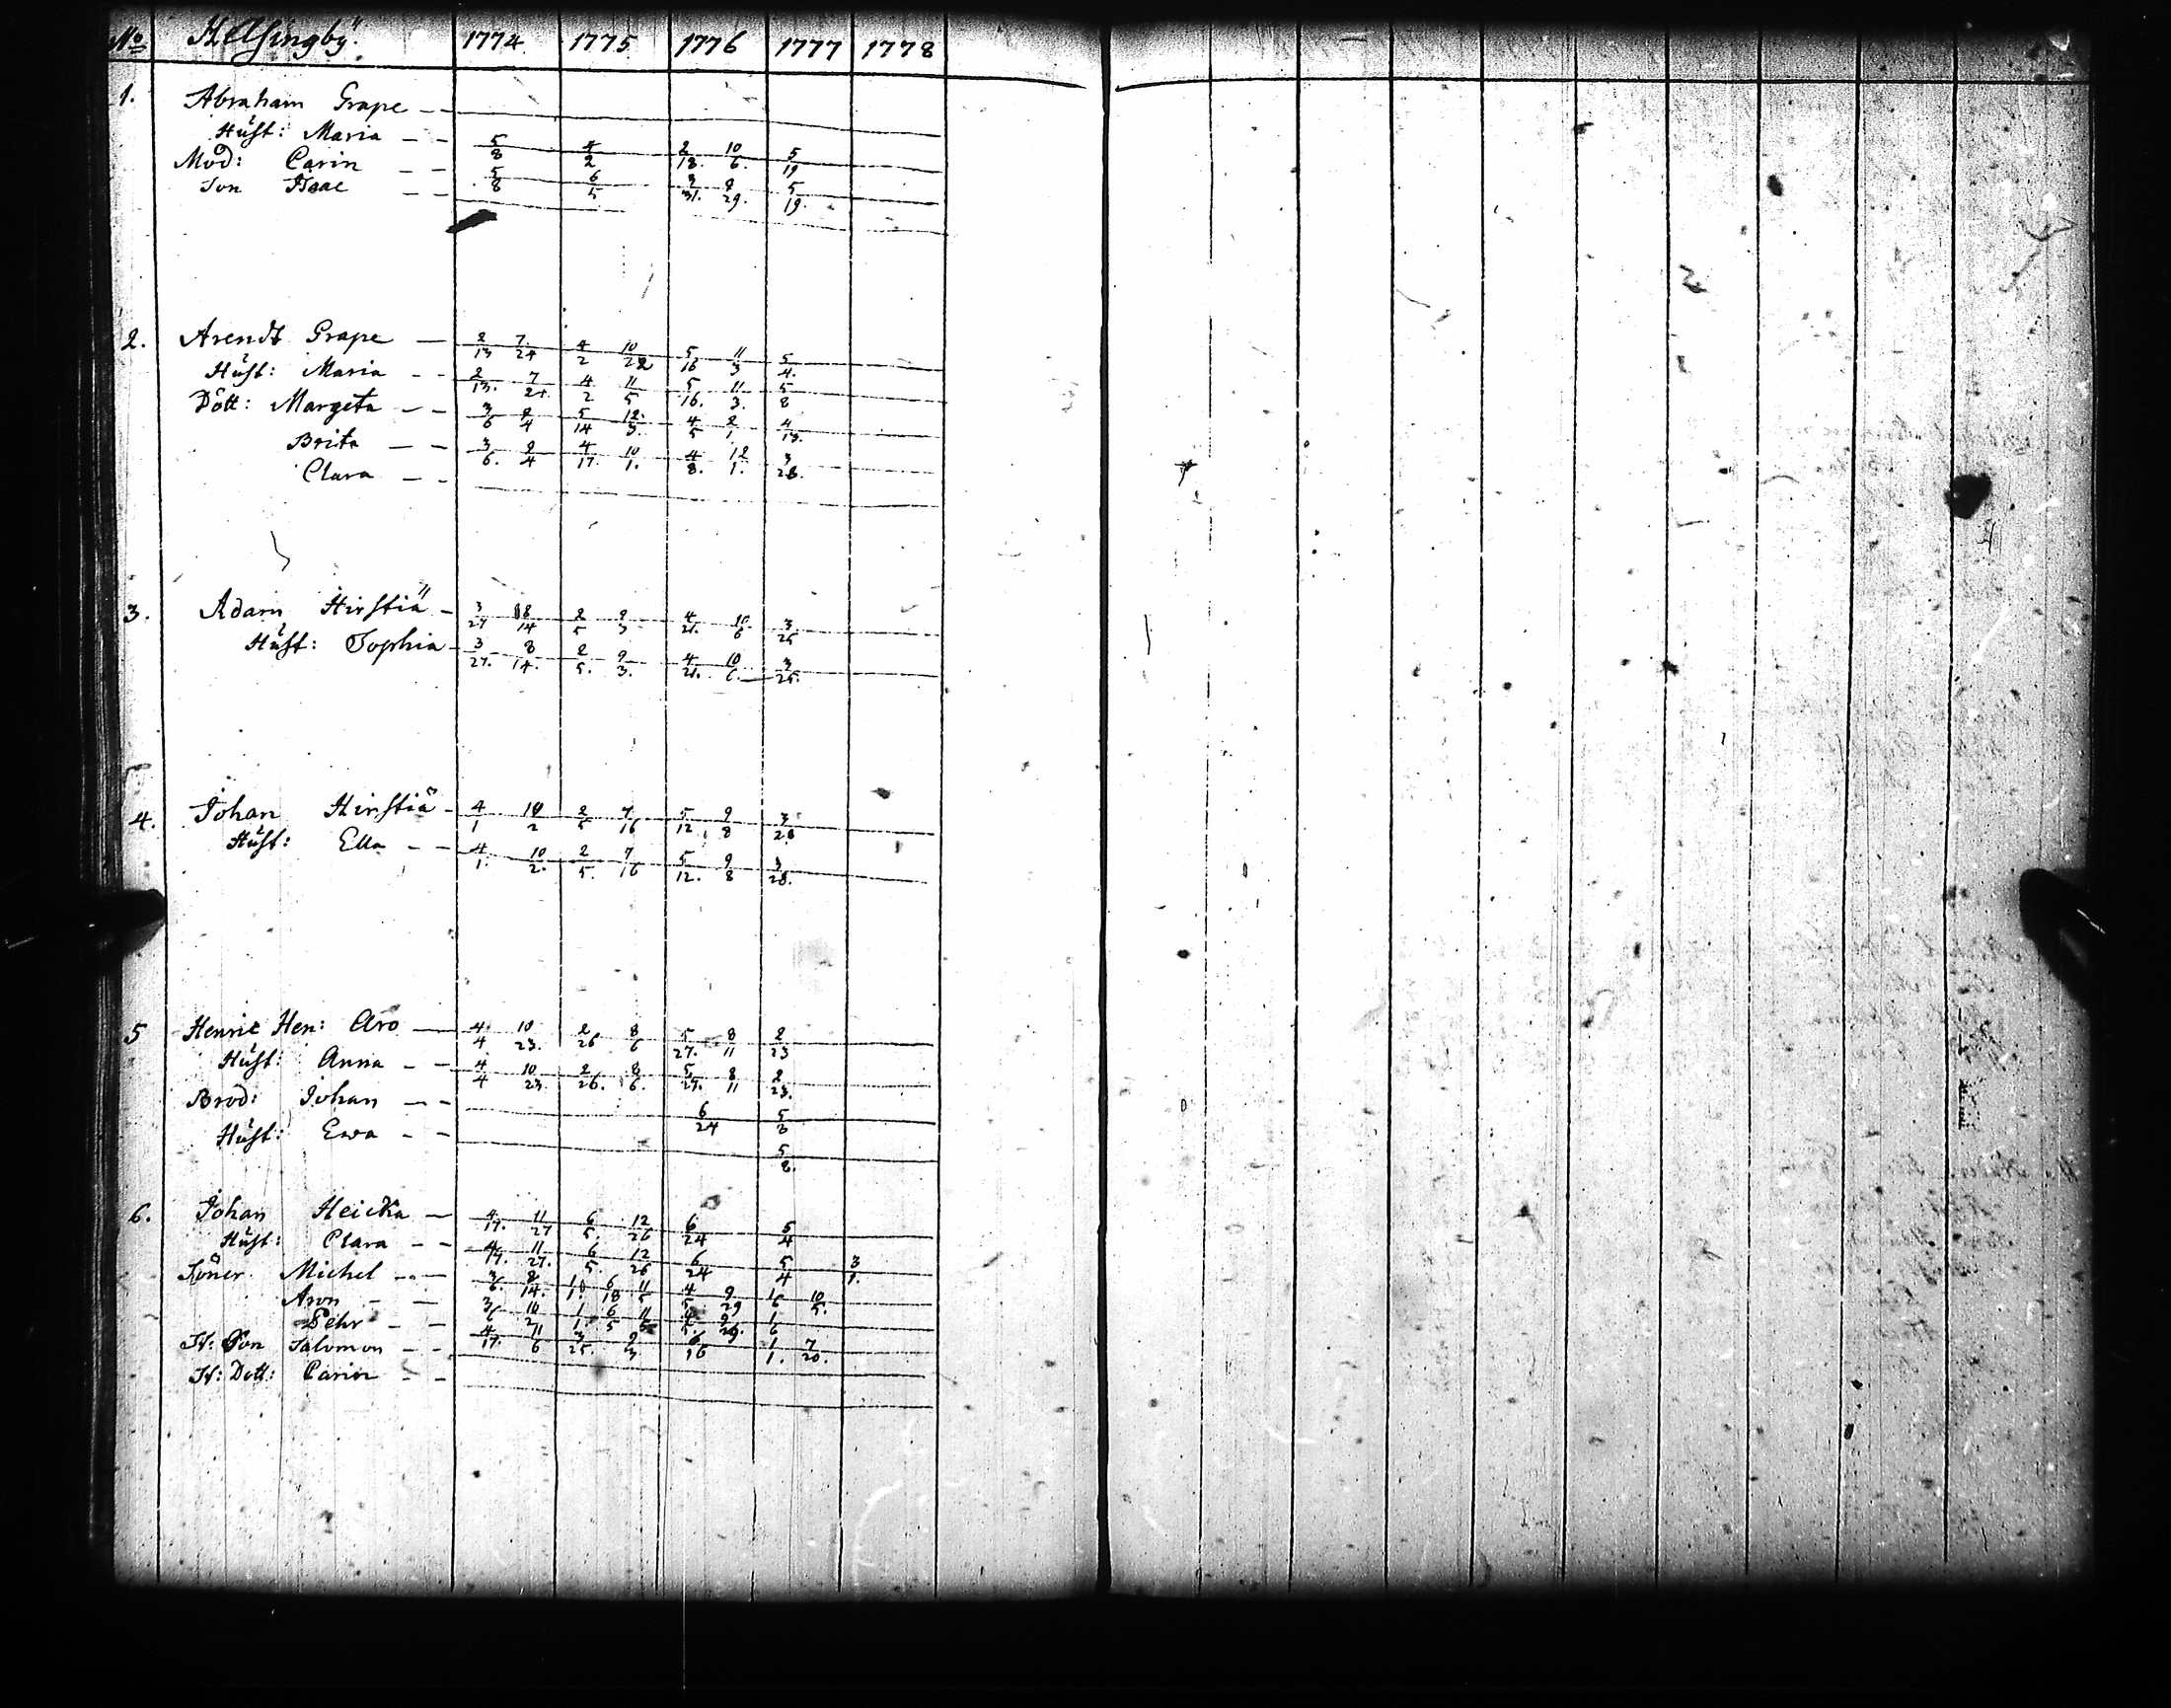 No Helsingby. 1774 1775 1776 1777 1778
1. Abraham Grape
Hust: Maria 5/8 4/2 2/18. 10/6. 5/19
Mod: Carin 5/8 6/5 3/31. 9/29. 5/19.
Son Isaac
2. Arendt Grape 2/13 7./24 4/2 10/22 5/16 11/3 5/4.
Hust: Maria 2/13. 7/24 4/2 11/5 5/16. 11/3. 5/8
Dött: Margeta 3/6 9/4 5/14 12./3. 4/5 2/1 4/13.
Brita 3/6. 9/4 4/17. 10/1. 4/8. 12/1. 3/28.
Clara
3. Adam Hirstiä 3/27 8/14 2/5 9/3 4/21. 10/6 3/25
Hust: Sophia 3/27. 8/14. 2/5. 9/3. 4/21. 10/6. 3/25.
4. Johan Hirstiä 4/1 10/2 2/5 7/16 5/12 9/8 3/28
Hust: Ella 4/1. 10/2. 2/5. 7/16 5/12. 9/8 3/28.
5 Henric Hen: Aro 4/4 10/23. 2/26 8/6 5/27. 8/11 2/23
Hust: Anna 4/4 10/23 2/26. 8/6. 5/27. 8/11 2/23.
Brod: Johan 6/24 5/8
Hust: Ewa 5/8.
6. Johan Heicka 4/17. 11/27 6/5. 12/26 6/24 5/4
Hust: Clara 4/17. 11/27. 6/5. 12/26 6/24 5/4 3/1.
Söner Michel 3/6. 8/14. 1/1. 6/18 11/5 4/5 9/29 1/6 10/5.
Aron 3/6 10/2 1/1. 6/5 11/5 4/5. 9/29. 1/6
Pehr 4/17. 11/6 3/25. 9/3 6/16 1/1. 7/20.
St: Son Salomon
St: Dott: Carin